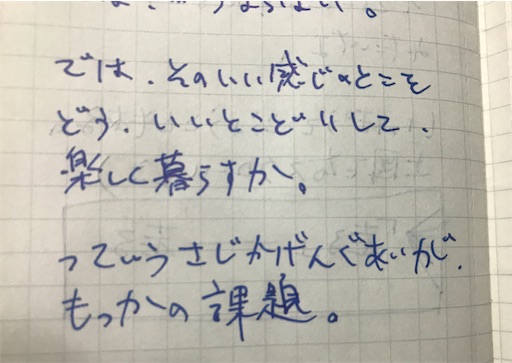 では、そのいい感じのとこを
どう、いいとこどりして、
楽しく暮らすか。
っていうさじかげんぐあいが、
もっかの課題。